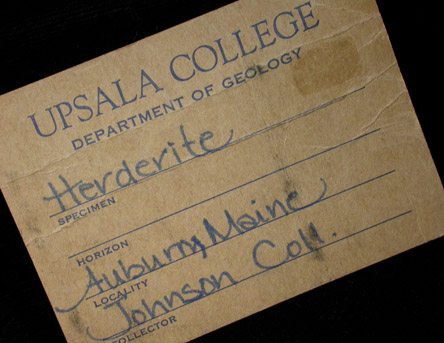 UPSALA COLLEGE
DEPARTMENT OF GEOLOGY
Herderite
SPECIMEN
HORIZON
Auburn, Maine
LOCALITY
Johnson Coll.
COLLECTOR